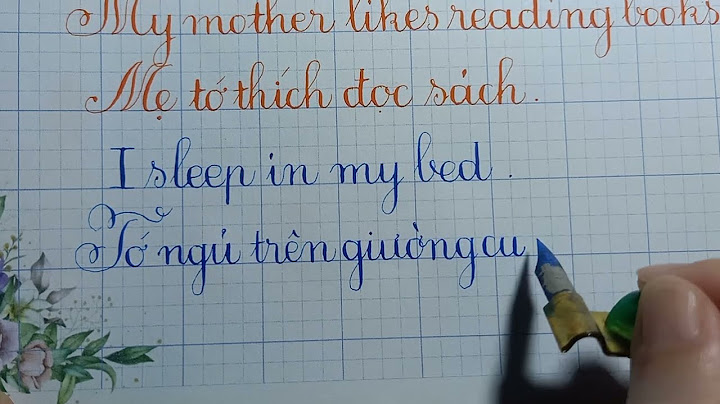 My mother likes reading books
Mẹ tớ thích đọc sách.
I sleep in my bed.
Tớ ngủ trên giường cu